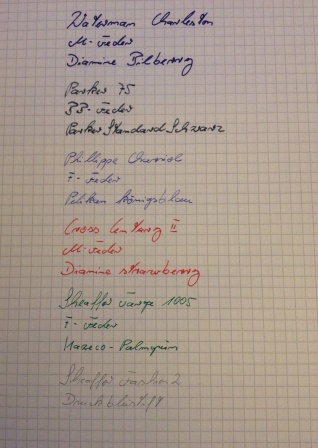 Waterman Charleston
M-Feder
Diamine Bilberry
Parker 75
BB-Feder
Parker Standard Schwarz
Phillippe
F-Feder
Pelikan Königsblau
Cross Century II
M-Feder
Diamine strawberry
Sheaffer Targa 1005
F-Feder
Palmgrün
Sheaffer Fashion 2
Druckbleistift